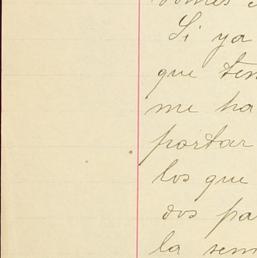 Si ya
que ten
me ha
portar
los que
dos pa
la sem